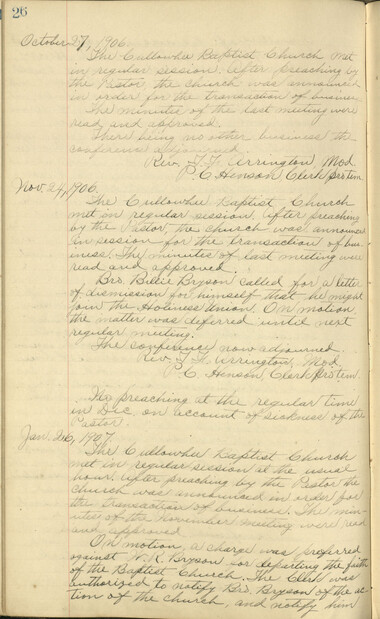 26
October 27, 1906.
The Cullowhee Baptist Church met
in regular session. After preaching by
the Pastor, the church was announced
in order for the transaction of business.
The minutes of the last meeting were
read and approved.
There being no other business the
conference adjourned.
Rev. Arrington, Mod.
P. C. Henson, Clerk pro tem
Nov. 24, 1906.
The Cullowhee Baptist Church
met in regular session. After preaching
by the Pastor, the church was announced
in session for the transaction of bus-
iness. The minutes of last meeting were
read and approved.
Bro. Billie Bryson called for a letter
of dismission for himself that he might
join the Holiness Union. On motion
the matter was deferred until next
regular meeting.
The conference now adjourned.
Rev. Arrington, Mod.
P. C. Henson, Clerk pro tem.
No preaching at the regular time
in Dec. on account of sickness of the
Pastor.
Jan. 26, 1907.
The Cullowhee Baptist Church
met in regular session at the usual
hour. After preaching by the Pastor the
church was announced in order for
the transaction of business. The min-
utes of the November meeting were read
and approved.
On motion, a charge was preferred
against W. R. Bryson for departing the faith
of the Baptist Church. The Clerk was
authorized to notify Bro. Bryson of the ac-
tion of the church, and notify him